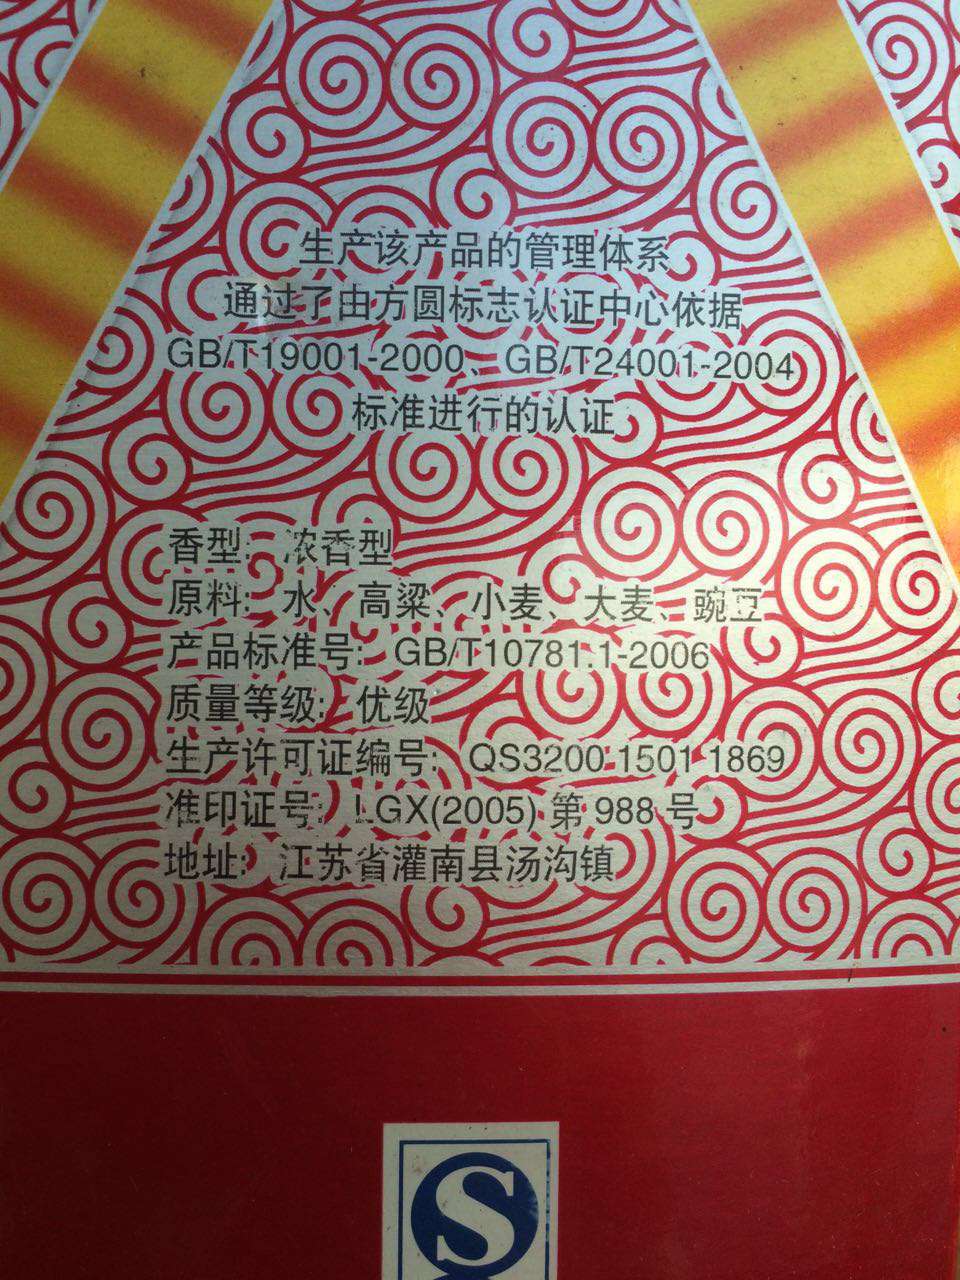 生产该产品的管理体系
通过了由方圆标志认证中心依据
GB/T19001-2000、GB/T24001-2004
标准进行的认证
香型: 浓香型
原料: 水、高粱、小麦、大麦、豌豆
产品标准号: GB/T10781.1-2006
质量等级: 优级
生产许可证编号: QS3200 1501 1869
准印证号: LGX(2005) 第 988 号
地址: 江苏省灌南县汤沟镇
S